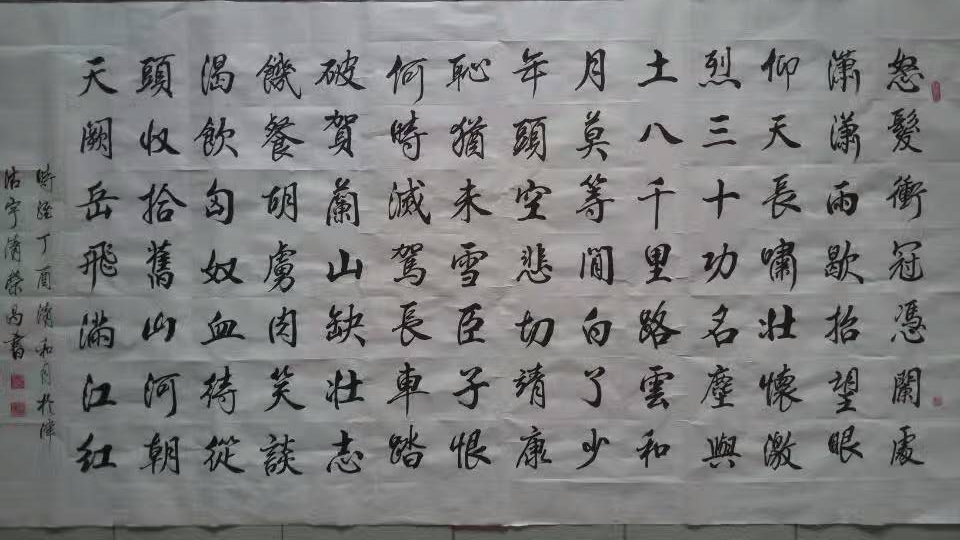 怒髮衝冠憑闌處
瀟瀟雨歇抬望眼
仰天長嘯壯懷激
烈三十功名塵與
土八千里路雲和
月莫等閒白了少
年頭空悲切靖康
恥猶未雪臣子恨
何時滅駕長車踏
破賀蘭山缺壯志
饑餐胡虜肉笑談
渴飲匈奴血待從
頭收拾舊山河朝
天闕岳飛滿江紅
時經丁酉清和月於津
沽寧清榮昌書